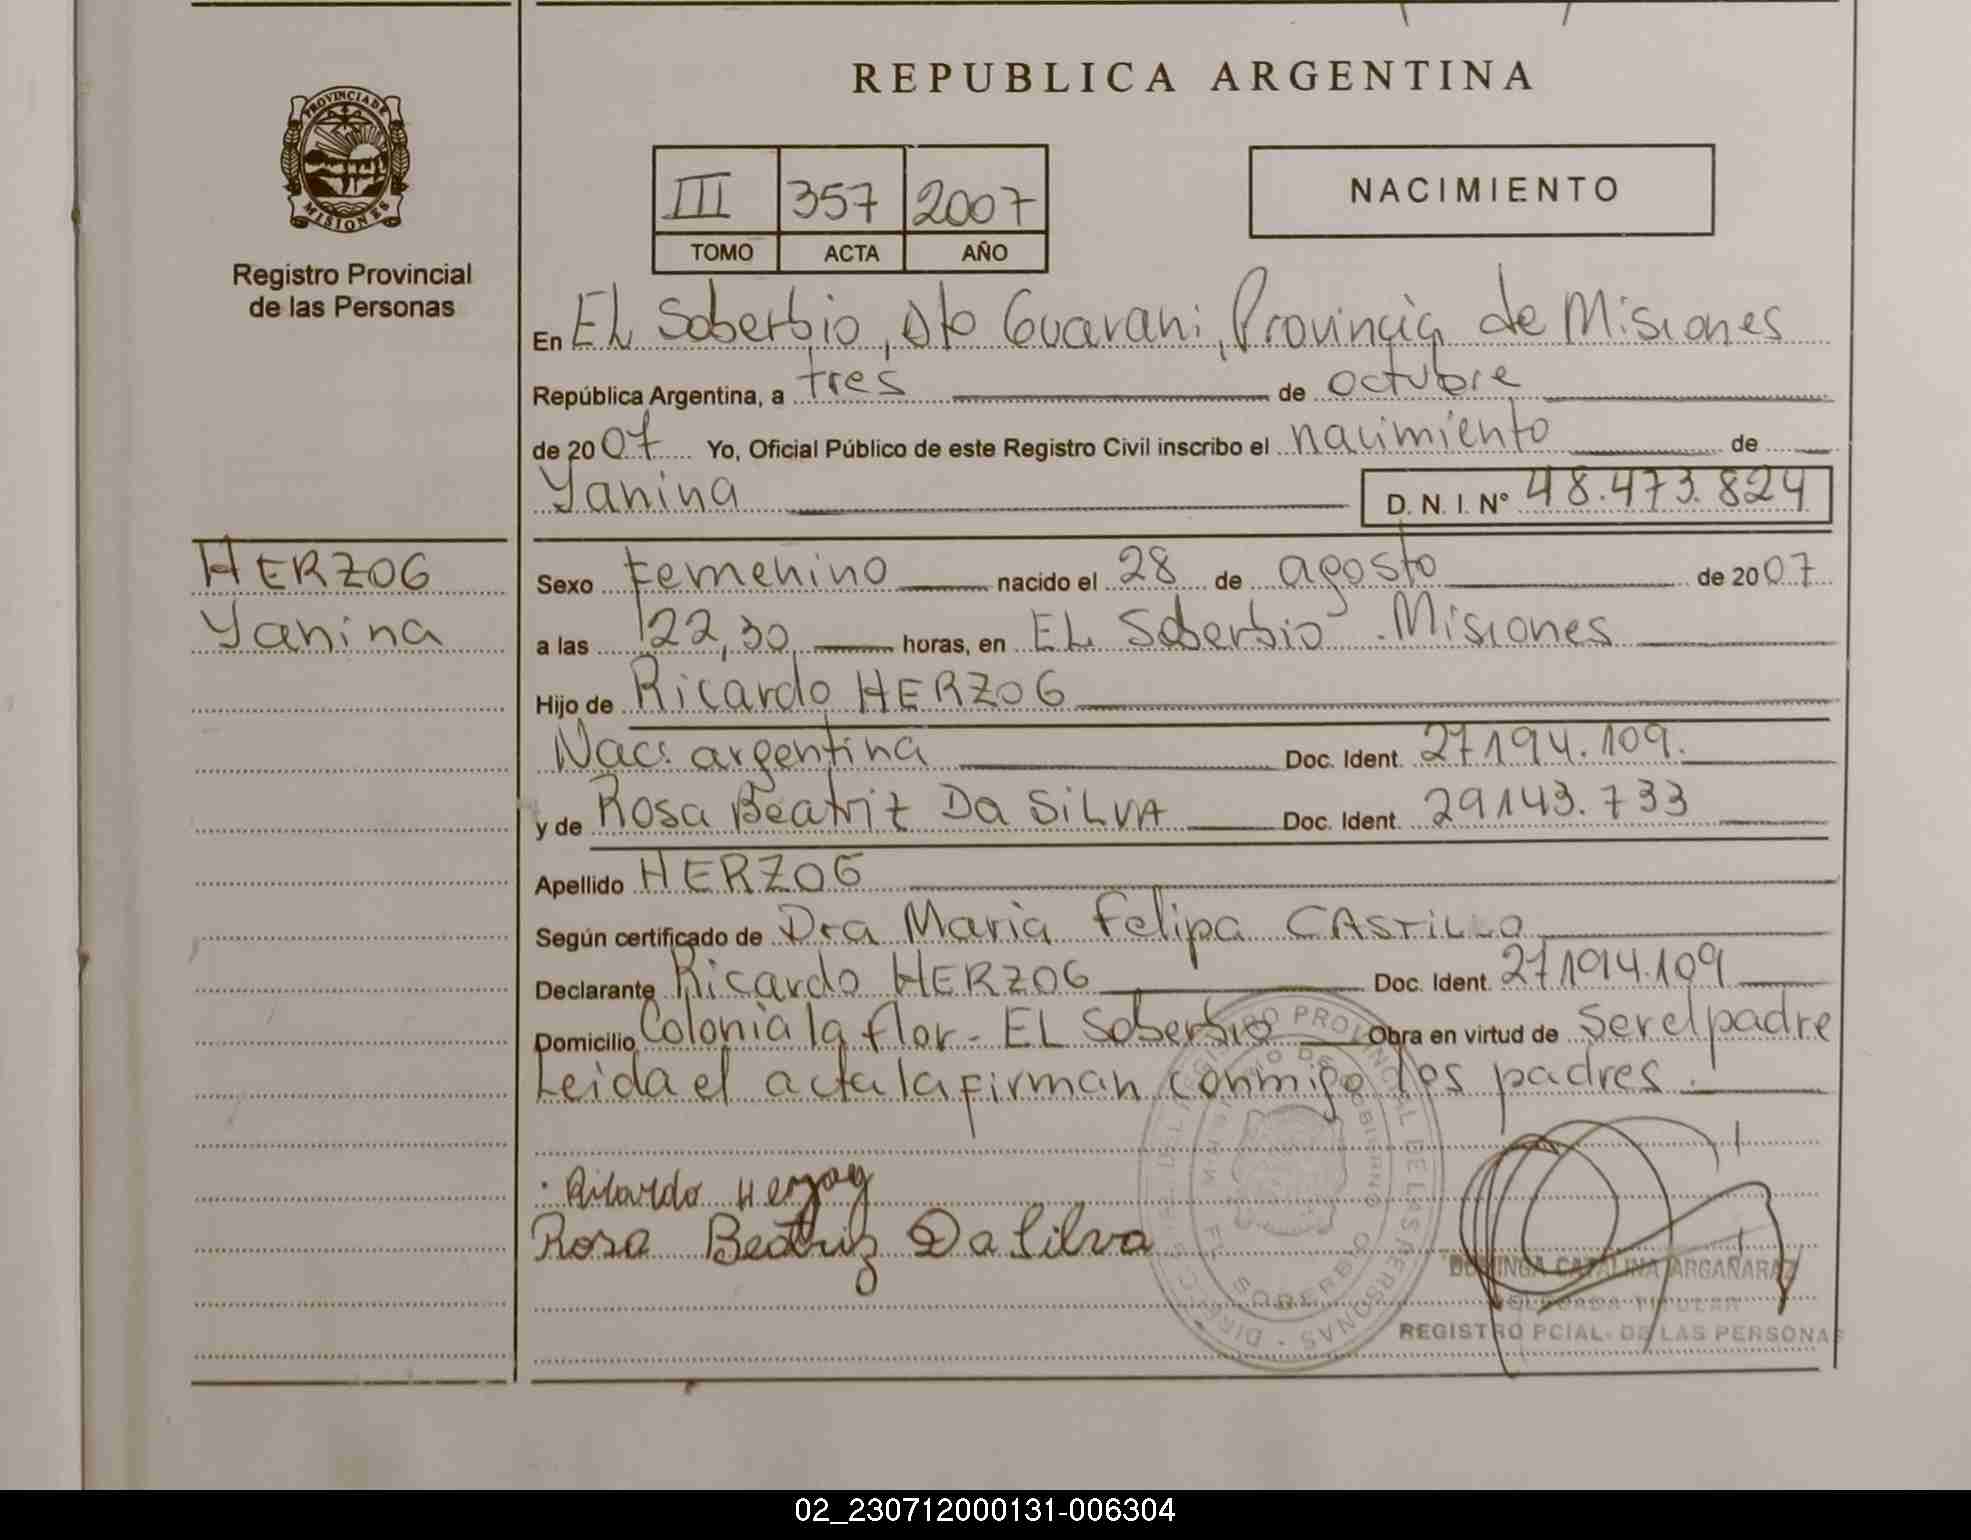 REPUBLICA ARGENTINA
PROVINCIA DE
MISIONES
Registro Provincial
de las Personas
III 357 2007
TOMO ACTA AÑO
NACIMIENTO
En EL Soberbio, Dto Guarani, Provincia de Misiones
República Argentina, a tres de octubre
de 2007 Yo, Oficial Público de este Registro Civil inscribo el nacimiento de
Yanina D. N. I. Nº 48.473.824
HERZOG
Yanina
Sexo Femenino nacido el 28 de agosto de 2007
a las 22,30 horas, en EL Soberbio - Misiones
Hijo de Ricardo HERZOG
Nac: argentina Doc. Ident. 27194.109.
y de Rosa Beatriz Da SiLVA Doc. Ident. 29143.733
Apellido HERZOG
Según certificado de Dra Maria Felipa CASTILLO
Declarante Ricardo HERZOG Doc. Ident. 27194.109
Domicilio Colonia la flor - EL Soberbio Obra en virtud de ser el padre
Leida el acta la firman conmigo los padres.
Ricardo Herzog
Rosa Beatriz Da Silva
DIREC. GRAL. DEL REGISTRO PROVINCIAL DE LAS PERSONAS
MINISTERIO DE GOBIERNO
EL SOBERBIO
DOMINGA CATALINA ARGAÑARAZ
DELEGADA TITULAR
REGISTRO PCIAL. DE LAS PERSONAS
02_230712000131-006304